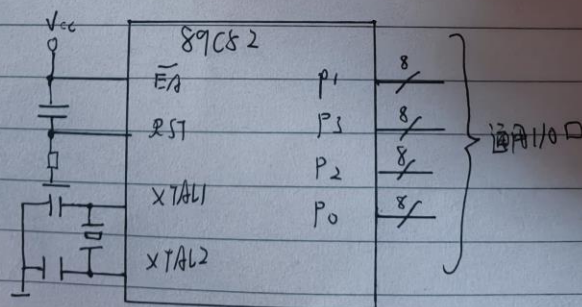 Vcc
89C82
EA
RST
XTAL1
XTAL2
P1
8
P3
8
P2
8
P0
8
通用I/O口